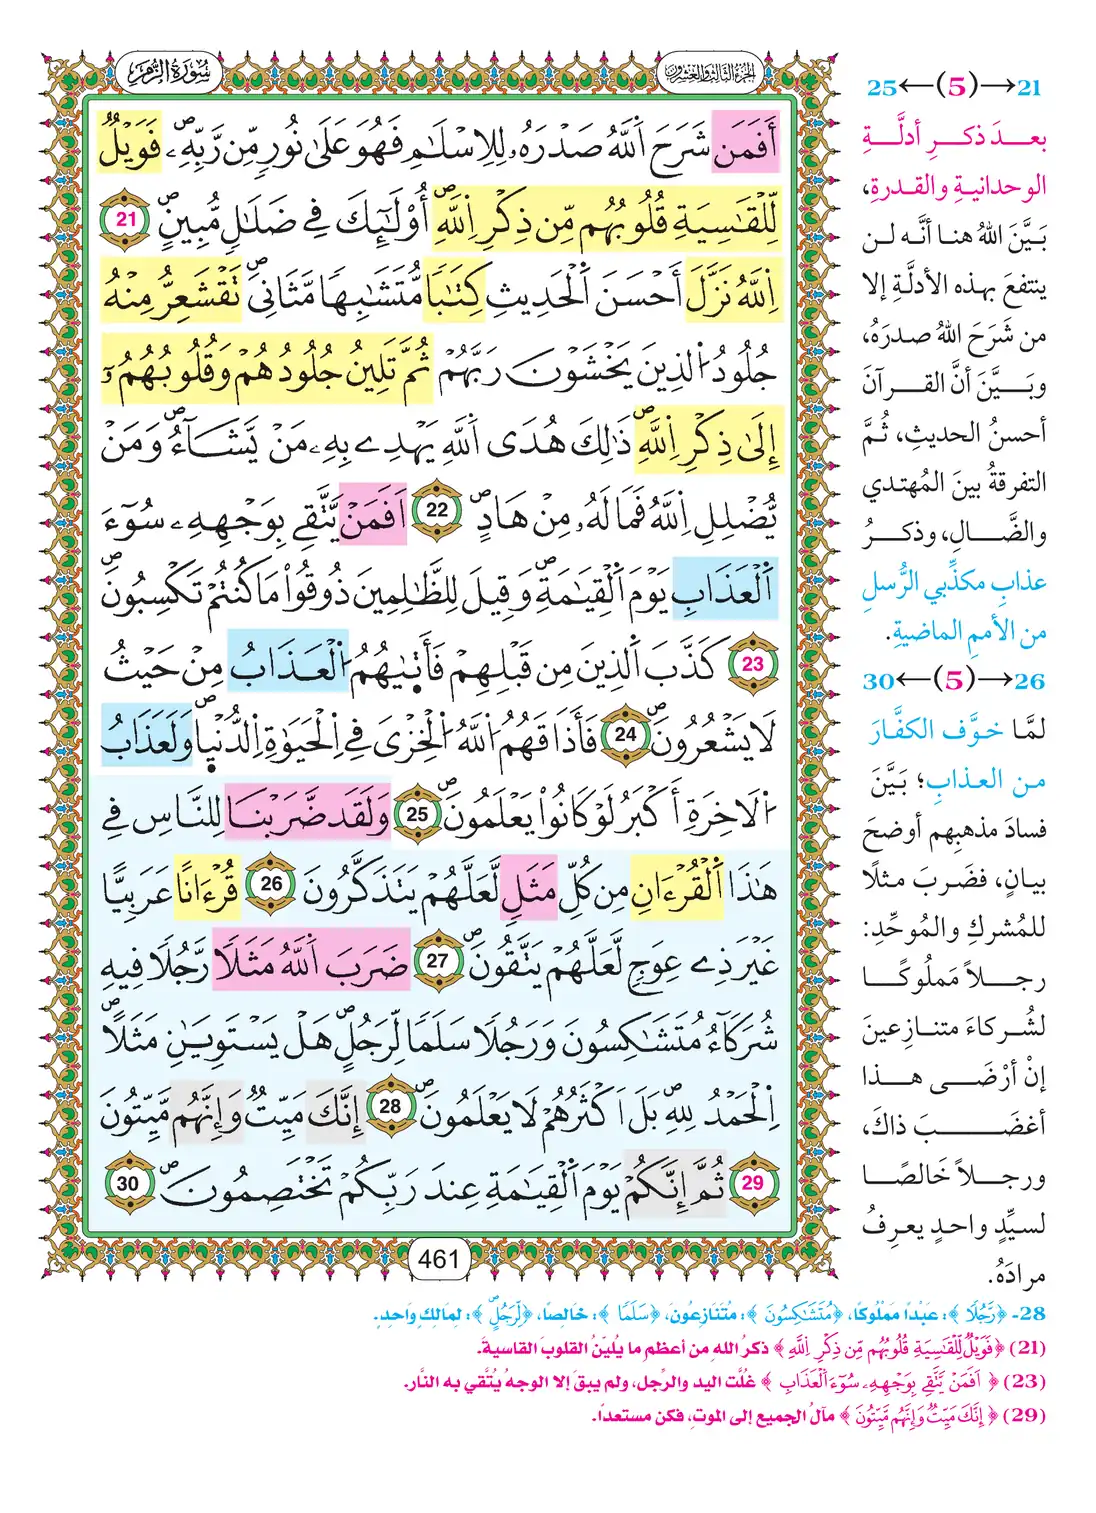 سُورَةُ الزُّمَر
الجزء الثالث والعشرون
أَفَمَن شَرَحَ اَللَّهُ صَدْرَهُۥ لِلِاسْلَٰمِ فَهُوَ عَلَىٰ نُورٖ مِّن رَّبِّهِۦۖ فَوَيْلٞ
لِّلْقَٰسِيَةِ قُلُوبُهُم مِّن ذِكْرِ اِللَّهِۖ أُوْلَٰٓئِكَ فِے ضَلَٰلٖ مُّبِينٍۖ 21
اِللَّهُ نَزَّلَ أَحْسَنَ اَلْحَدِيثِ كِتَٰبٗا مُّتَشَٰبِهٗا مَّثَانِيَۖ تَقْشَعِرُّ مِنْهُ
جُلُودُ اُلذِينَ يَخْشَوْنَ رَبَّهُمْ ثُمَّ تَلِينُ جُلُودُهُمْ وَقُلُوبُهُمُۥٓ
إِلَىٰ ذِكْرِ اِللَّهِۖ ذَٰلِكَ هُدَى اَللَّهِ يَهْدِے بِهِۦ مَنْ يَّشَآءُۖ وَمَنْ
يُّضْلِلِ اِللَّهُ فَمَا لَهُۥ مِنْ هَادٍۖ 22 اَفَمَنْ يَّتَّقِے بِوَجْهِهِۦ سُوٓءَ
اَلْعَذَابِ يَوْمَ اَلْقِيَٰمَةِۖ وَقِيلَ لِلظَّٰلِمِينَ ذُوقُواْ مَا كُنتُمْ تَكْسِبُونَۖ
23 كَذَّبَ اَلذِينَ مِن قَبْلِهِمْ فَأَتَىٰهُمُ اُلْعَذَابُ مِنْ حَيْثُ
لَا يَشْعُرُونَۖ 24 فَأَذَاقَهُمُ اُللَّهُ اُلْخِزْيَ فِے اِلْحَيَوٰةِ اِلدُّنْي۪اۖ وَلَعَذَابُ
اُلَاخِرَةِ أَكْبَرُ لَوْ كَانُواْ يَعْلَمُونَۖ 25 وَلَقَد ضَّرَبْنَا لِلنَّاسِ فِے
هَٰذَا اَلْقُرْءَانِ مِن كُلِّ مَثَلٖ لَّعَلَّهُمْ يَتَذَكَّرُونَۖ 26 قُرْءَاناً عَرَبِيّاً
غَيْرَ ذِے عِوَجٖ لَّعَلَّهُمْ يَتَّقُونَۖ 27 ضَرَبَ اَللَّهُ مَثَلٗا رَّجُلٗا فِيهِ
شُرَكَآءُ مُتَشَٰكِسُونَ وَرَجُلٗا سَلَمٗا لِّرَجُلٍۖ هَلْ يَسْتَوِيَٰنِ مَثَلاًۖ
اِلْحَمْدُ لِلهِۖ بَلَ اَكْثَرُهُمْ لَا يَعْلَمُونَۖ 28 إِنَّكَ مَيِّتٞ وَإِنَّهُم مَّيِّتُونَ
29 ثُمَّ إِنَّكُمْ يَوْمَ اَلْقِيَٰمَةِ عِندَ رَبِّكُمْ تَخْتَصِمُونَۖ 30
461
21→(5)←25
بعدَ ذكرِ أدلَّةِ
الوحدانيةِ والقدرةِ،
بَيَّنَ اللهُ هنا أنَّه لن
ينتفعَ بهذه الأدلَّةِ إلا
من شَرَحَ اللهُ صدرَهُ،
وبَيَّنَ أنَّ القرآنَ
أحسنُ الحديثِ، ثُمَّ
التفرقةُ بينَ المُهتدي
والضَّالِ، وذكرُ
عذابِ مكذِّبي الرُّسلِ
من الأممِ الماضيةِ.
26→(5)←30
لمَّا خوَّف الكفَّارَ
من العذابِ؛ بَيَّنَ
فسادَ مذهبِهم أوضحَ
بيانٍ، فضَربَ مثلًا
للمُشركِ والمُوحِّدِ:
رجلاً مَملُوكًا
لشُركاءَ متنازِعينَ
إنْ أرْضَى هذا
أغضَبَ ذاكَ،
ورجلاً خَالصًا
لسيِّدٍ واحدٍ يعرِفُ
مرادَهُ.
28- ﴿رَّجُلٗا﴾: عَبْدًا مَمْلُوكًا، ﴿مُتَشَٰكِسُونَ﴾: مُتَنَازِعُونَ، ﴿سَلَمٗا﴾: خَالِصًا، ﴿لِّرَجُلٍۖ﴾: لِمَالِكٍ وَاحِدٍ.
(21) ﴿فَوَيْلٞ لِّلْقَٰسِيَةِ قُلُوبُهُم مِّن ذِكْرِ اِللَّهِ﴾ ذكرُ اللهِ من أعظمِ ما يُليِّنُ القلوبَ القاسيةَ.
(23) ﴿اَفَمَنْ يَّتَّقِے بِوَجْهِهِۦ سُوٓءَ اَلْعَذَابِ﴾ غُلَّت اليد والرِّجل، ولم يبقَ إلا الوجهُ يُتَّقي به النَّار.
(29) ﴿إِنَّكَ مَيِّتٞ وَإِنَّهُم مَّيِّتُونَ﴾ مآلُ الجميعِ إلى الموتِ، فكن مستعدًا.